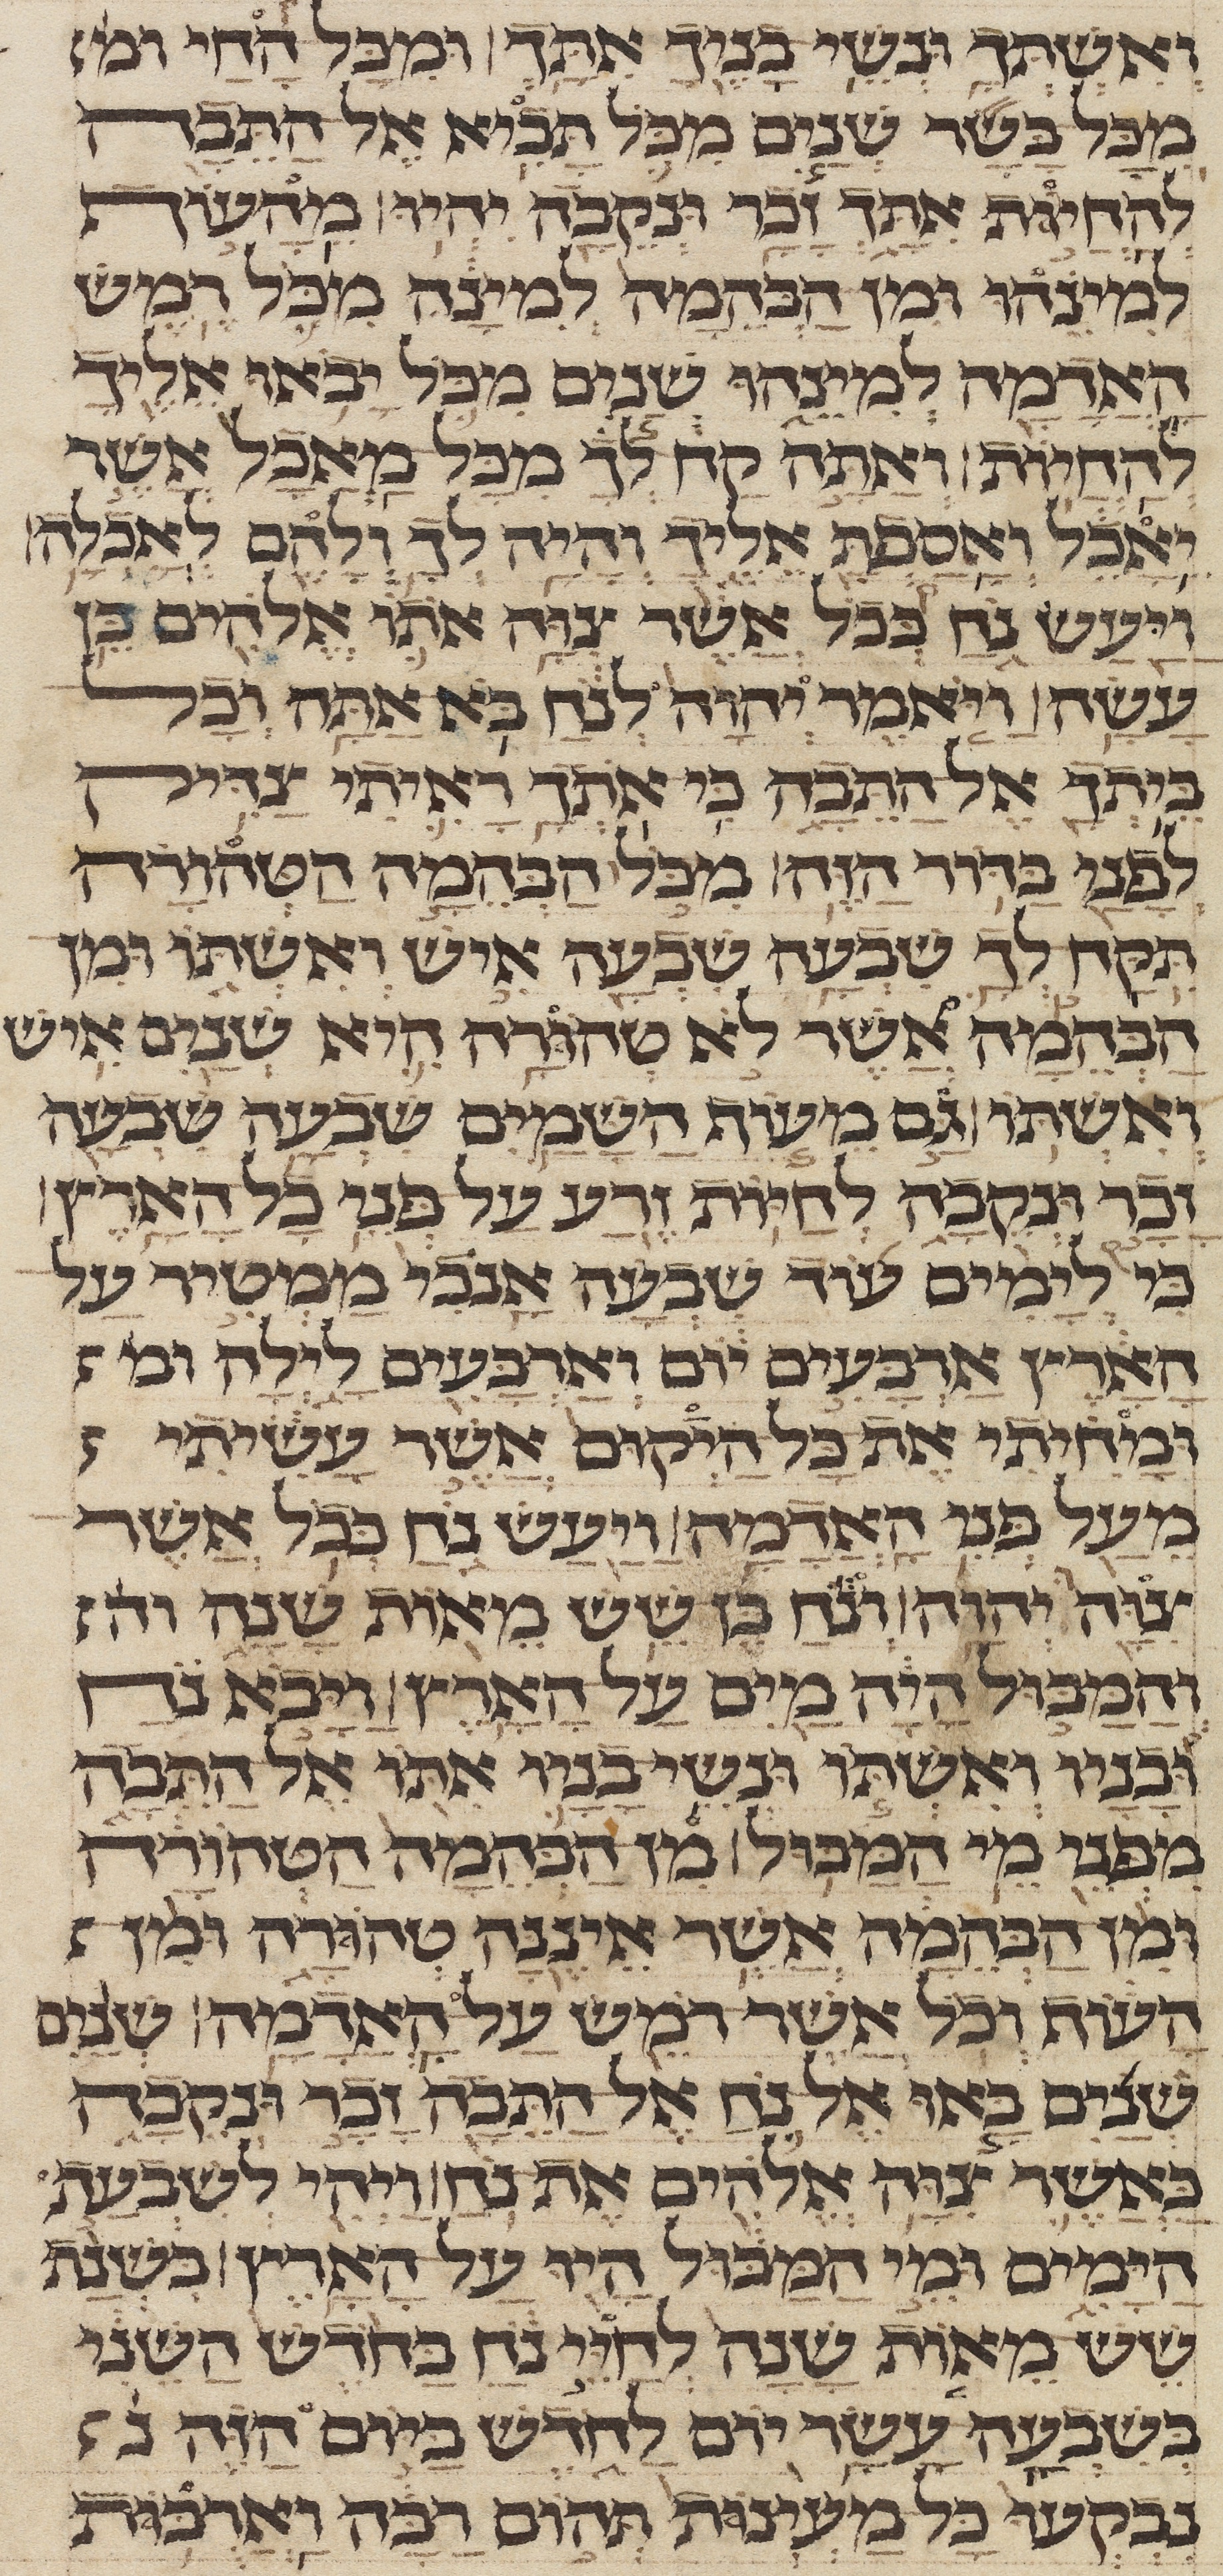 ואשתך ונשי בניך אתך׀ ומכל החי ומ
מכל בשר שנים מכל תביא אל התבה
להחיות אתך זכר ונקבה יהיו׀ מהעוף
למינהו ומן הבהמה למינה מכל רמש
האדמה למינהו שנים מכל יבאו אליך
להחיות׀ ואתה קח לך מכל מאכל אשר
יאכל ואספת אליך והיה לך ולהם לאכלה׀
ויעש נח ככל אשר צוה אתו אלהים כן
עשה׀ ויאמר יהוה לנח בא אתה וכל
ביתך אל התבה כי אתך ראיתי צדיק
לפני בדור הזה׀ מכל הבהמה הטהורה
תקח לך שבעה שבעה איש ואשתו ומן
הבהמה אשר לא טהורה היא שנים איש
ואשתו׀ גם מעוף השמים שבעה שבעה
זכר ונקבה לחיות זרע על פני כל הארץ׀
כי לימים עוד שבעה אנכי ממטיר על
הארץ ארבעים יום וארבעים לילה ומ
ומחיתי את כל היקום אשר עשיתי
מעל פני האדמה׀ ויעש נח ככל אשר
צוה יהוה׀ ונח בן שש מאות שנה וה
והמבול היה מים על הארץ׀ ויבא נח
ובניו ואשתו ונשי בניו אתו אל התבה
מפני מי המבול׀ מן הבהמה הטהורה
ומן הבהמה אשר איננה טהורה ומן
העוף וכל אשר רמש על האדמה׀ שנים
שנים באו אל נח אל התבה זכר ונקבה
כאשר צוה אלהים את נח׀ ויהי לשבעת
הימים ומי המבול היו על הארץ׀ בשנת
שש מאות שנה לחיי נח בחדש השני
בשבעה עשר יום לחדש ביום הזה נ
נבקעו כל מעינות תהום רבה וארבות